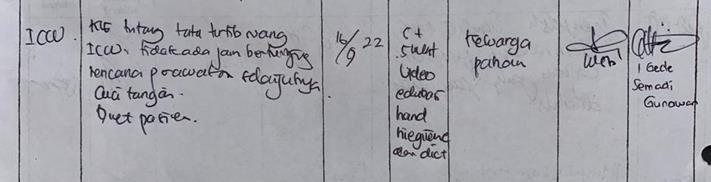 ICCU.
KIE tntang tata tertib ruang
ICCU, tidak ada jam berkunjung
rencana perawatan selanjutnya
Cuci tangan.
Diet pasien.
16/9 22
C+
video
edukasi
hand
hiegiene
dan diet
keluarga
paham
I Gede
Semadi
Gunawan